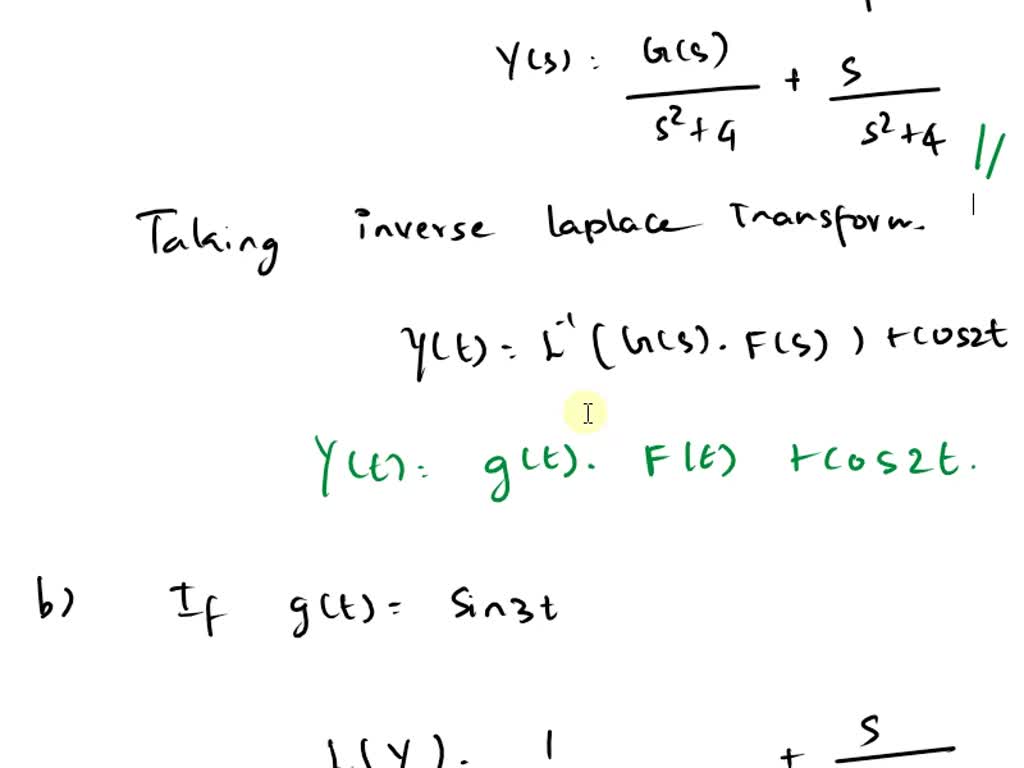 Y(s) : G(s) / s²+4 + s / s²+4 //
Taking inverse laplace Transform.
Y(t) = L⁻¹ (G(s) . F(s) ) + cos2t
Y(t) : g(t). F(t) + cos2t.
b) If g(t) = Sin3t
L(Y). 1 + s